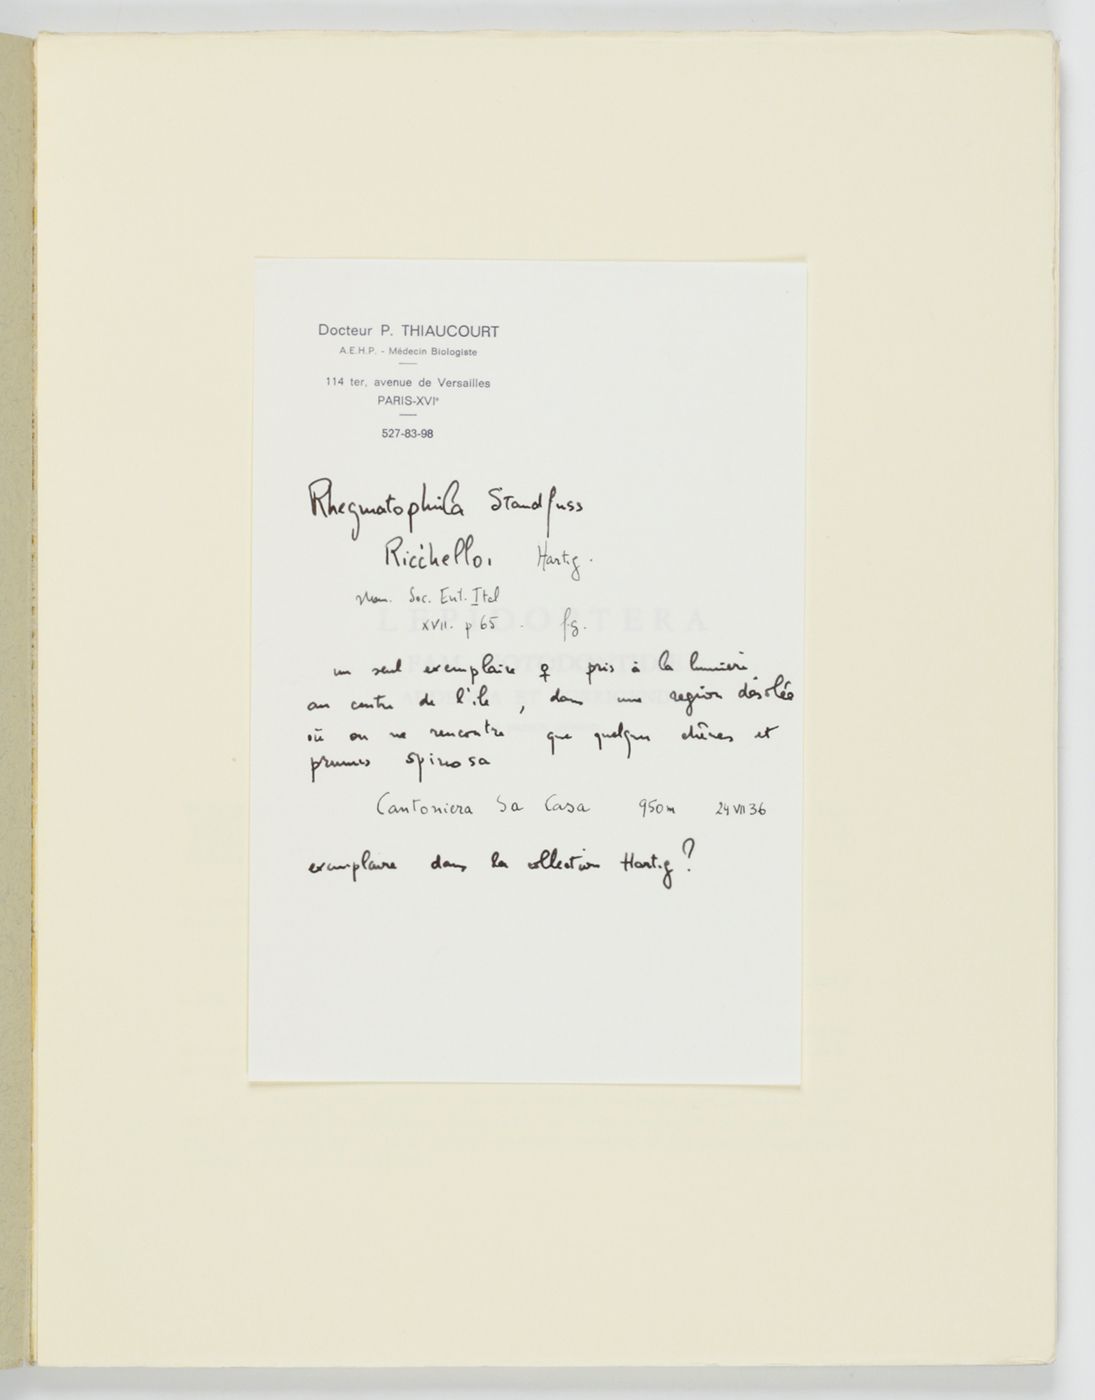 Docteur P. THIAUCOURT
A.E.H.P. - Médecin Biologiste
114 ter, avenue de Versailles
PARIS-XVIe
527-83-98
Rhegmatophila Standfuss
Ricchelloi Hartig.
Mem. Soc. Ent. Ital
XVII. p 65. fig.
LEPIDOPTERA
un seul exemplaire ♀ pris à la lumière
au centre de l'île, dans une region désolée
où on ne rencontre que quelques chênes et
prunus spinosa
Cantoniera Sa Casa 950m 24 VII 36
exemplaire dans la collection Hartig?